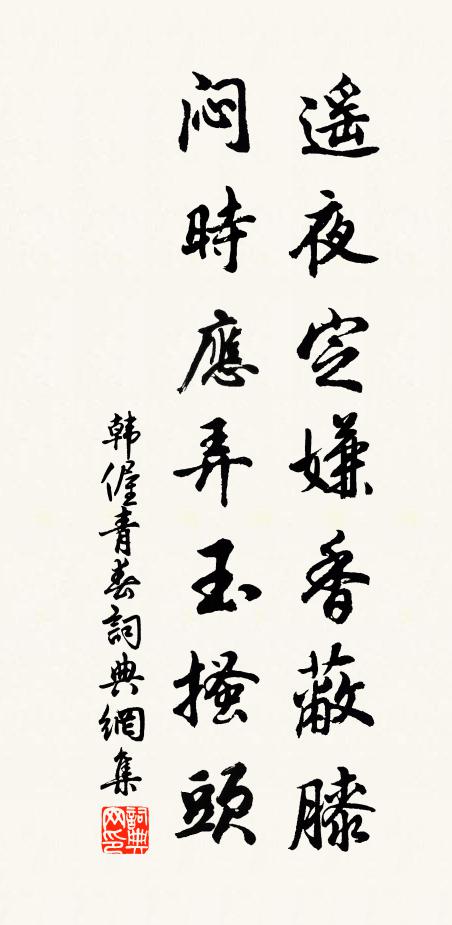 遥夜定嫌香蔽膝
闷時應弄玉搔頭
韩偓青春詞典網集
詞典网印